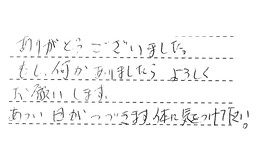 ありがとうございました。
もし、何かありましたら よろしく
お願いします。
あつい日がつづきます。体に気をつけて下さい。